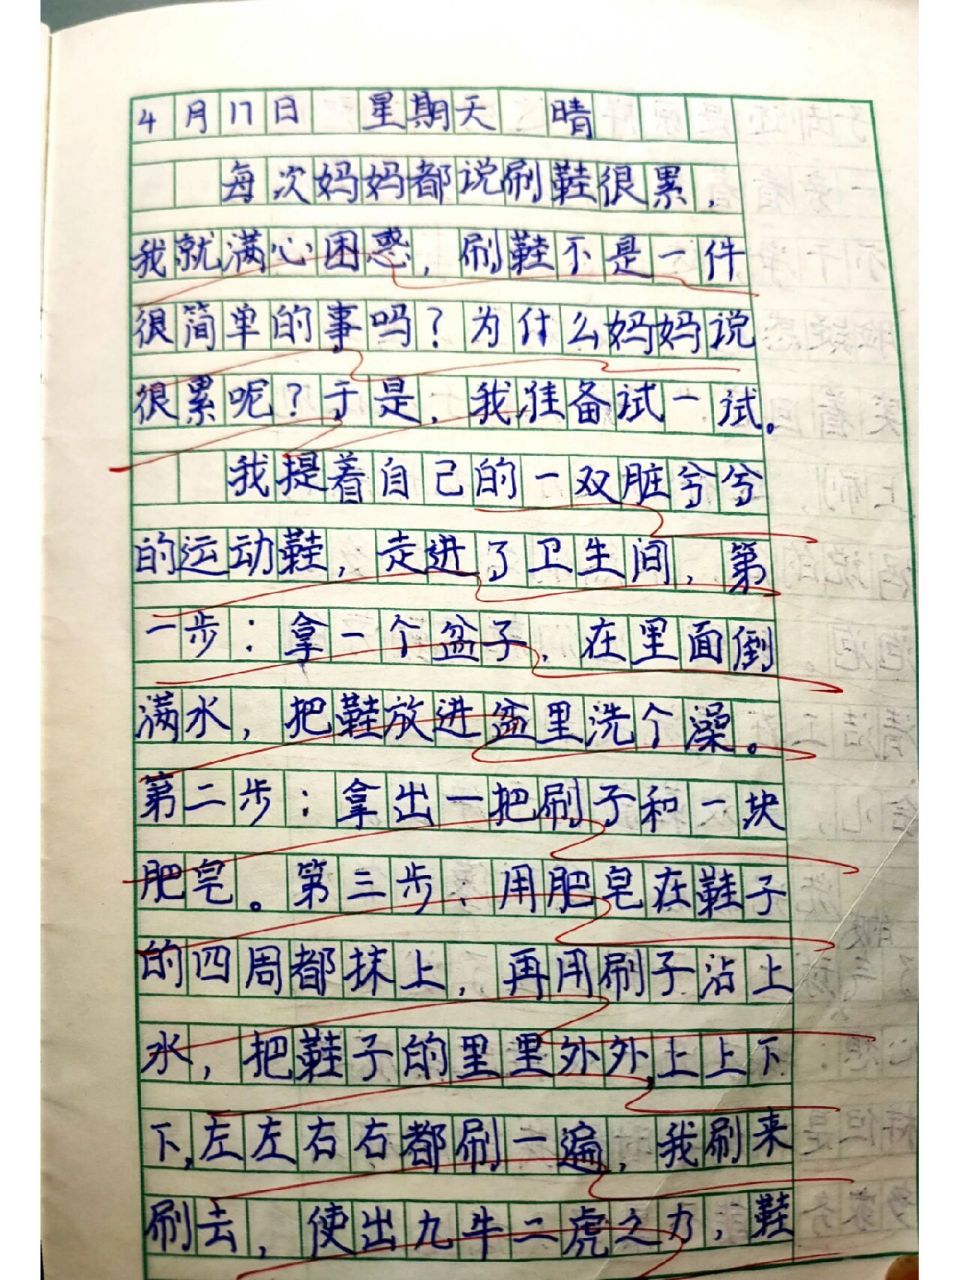 4月17日 星期天 晴
每次妈妈都说刷鞋很累，
我就满心困惑，刷鞋不是一件
很简单的事吗？为什么妈妈说
很累呢？于是，我准备试一试。
我提着自己的一双脏兮兮
的运动鞋，走进了卫生间，第
一步：拿一个盆子，在里面倒
满水，把鞋放进盆里洗个澡。
第二步：拿出一把刷子和一块
肥皂。第三步：用肥皂在鞋子
的四周都抹上，再用刷子沾上
水，把鞋子的里里外外，上上下
下，左左右右都刷一遍，我刷来
刷去，使出九牛二虎之力，鞋